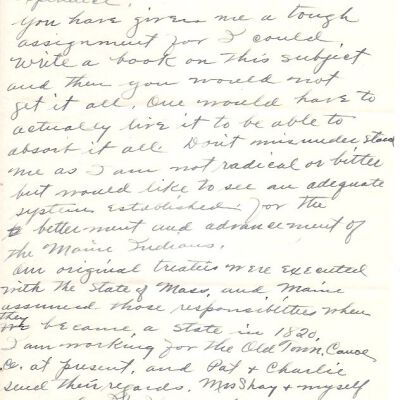 You have given me a tough
assignment for I could
write a book on this subject
and then you would not
get it all. One would have to
actually live it to be able to
absorb it all Don't misunderstand
me as I am not radical or bitter
but would like to see an adequate
system established for the
betterment and advancement of
the Maine Indians.
Our original treaties were executed
with the State of Mass, and Maine
assumed those responsibilties when
they
became a State in 1820.
I am working for the Old Town Canoe
Co. at present, and Pat + Charlie
send their regards. Mrs Shay + myself